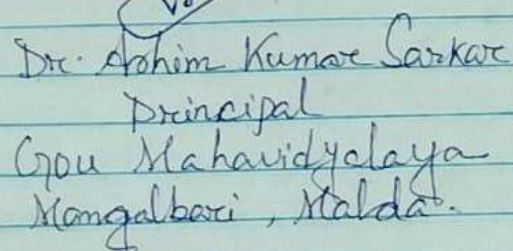 Dr. Ashim Kumar Sarkar
Principal
Gou Mahavidyalaya
Mangalbari, Malda.